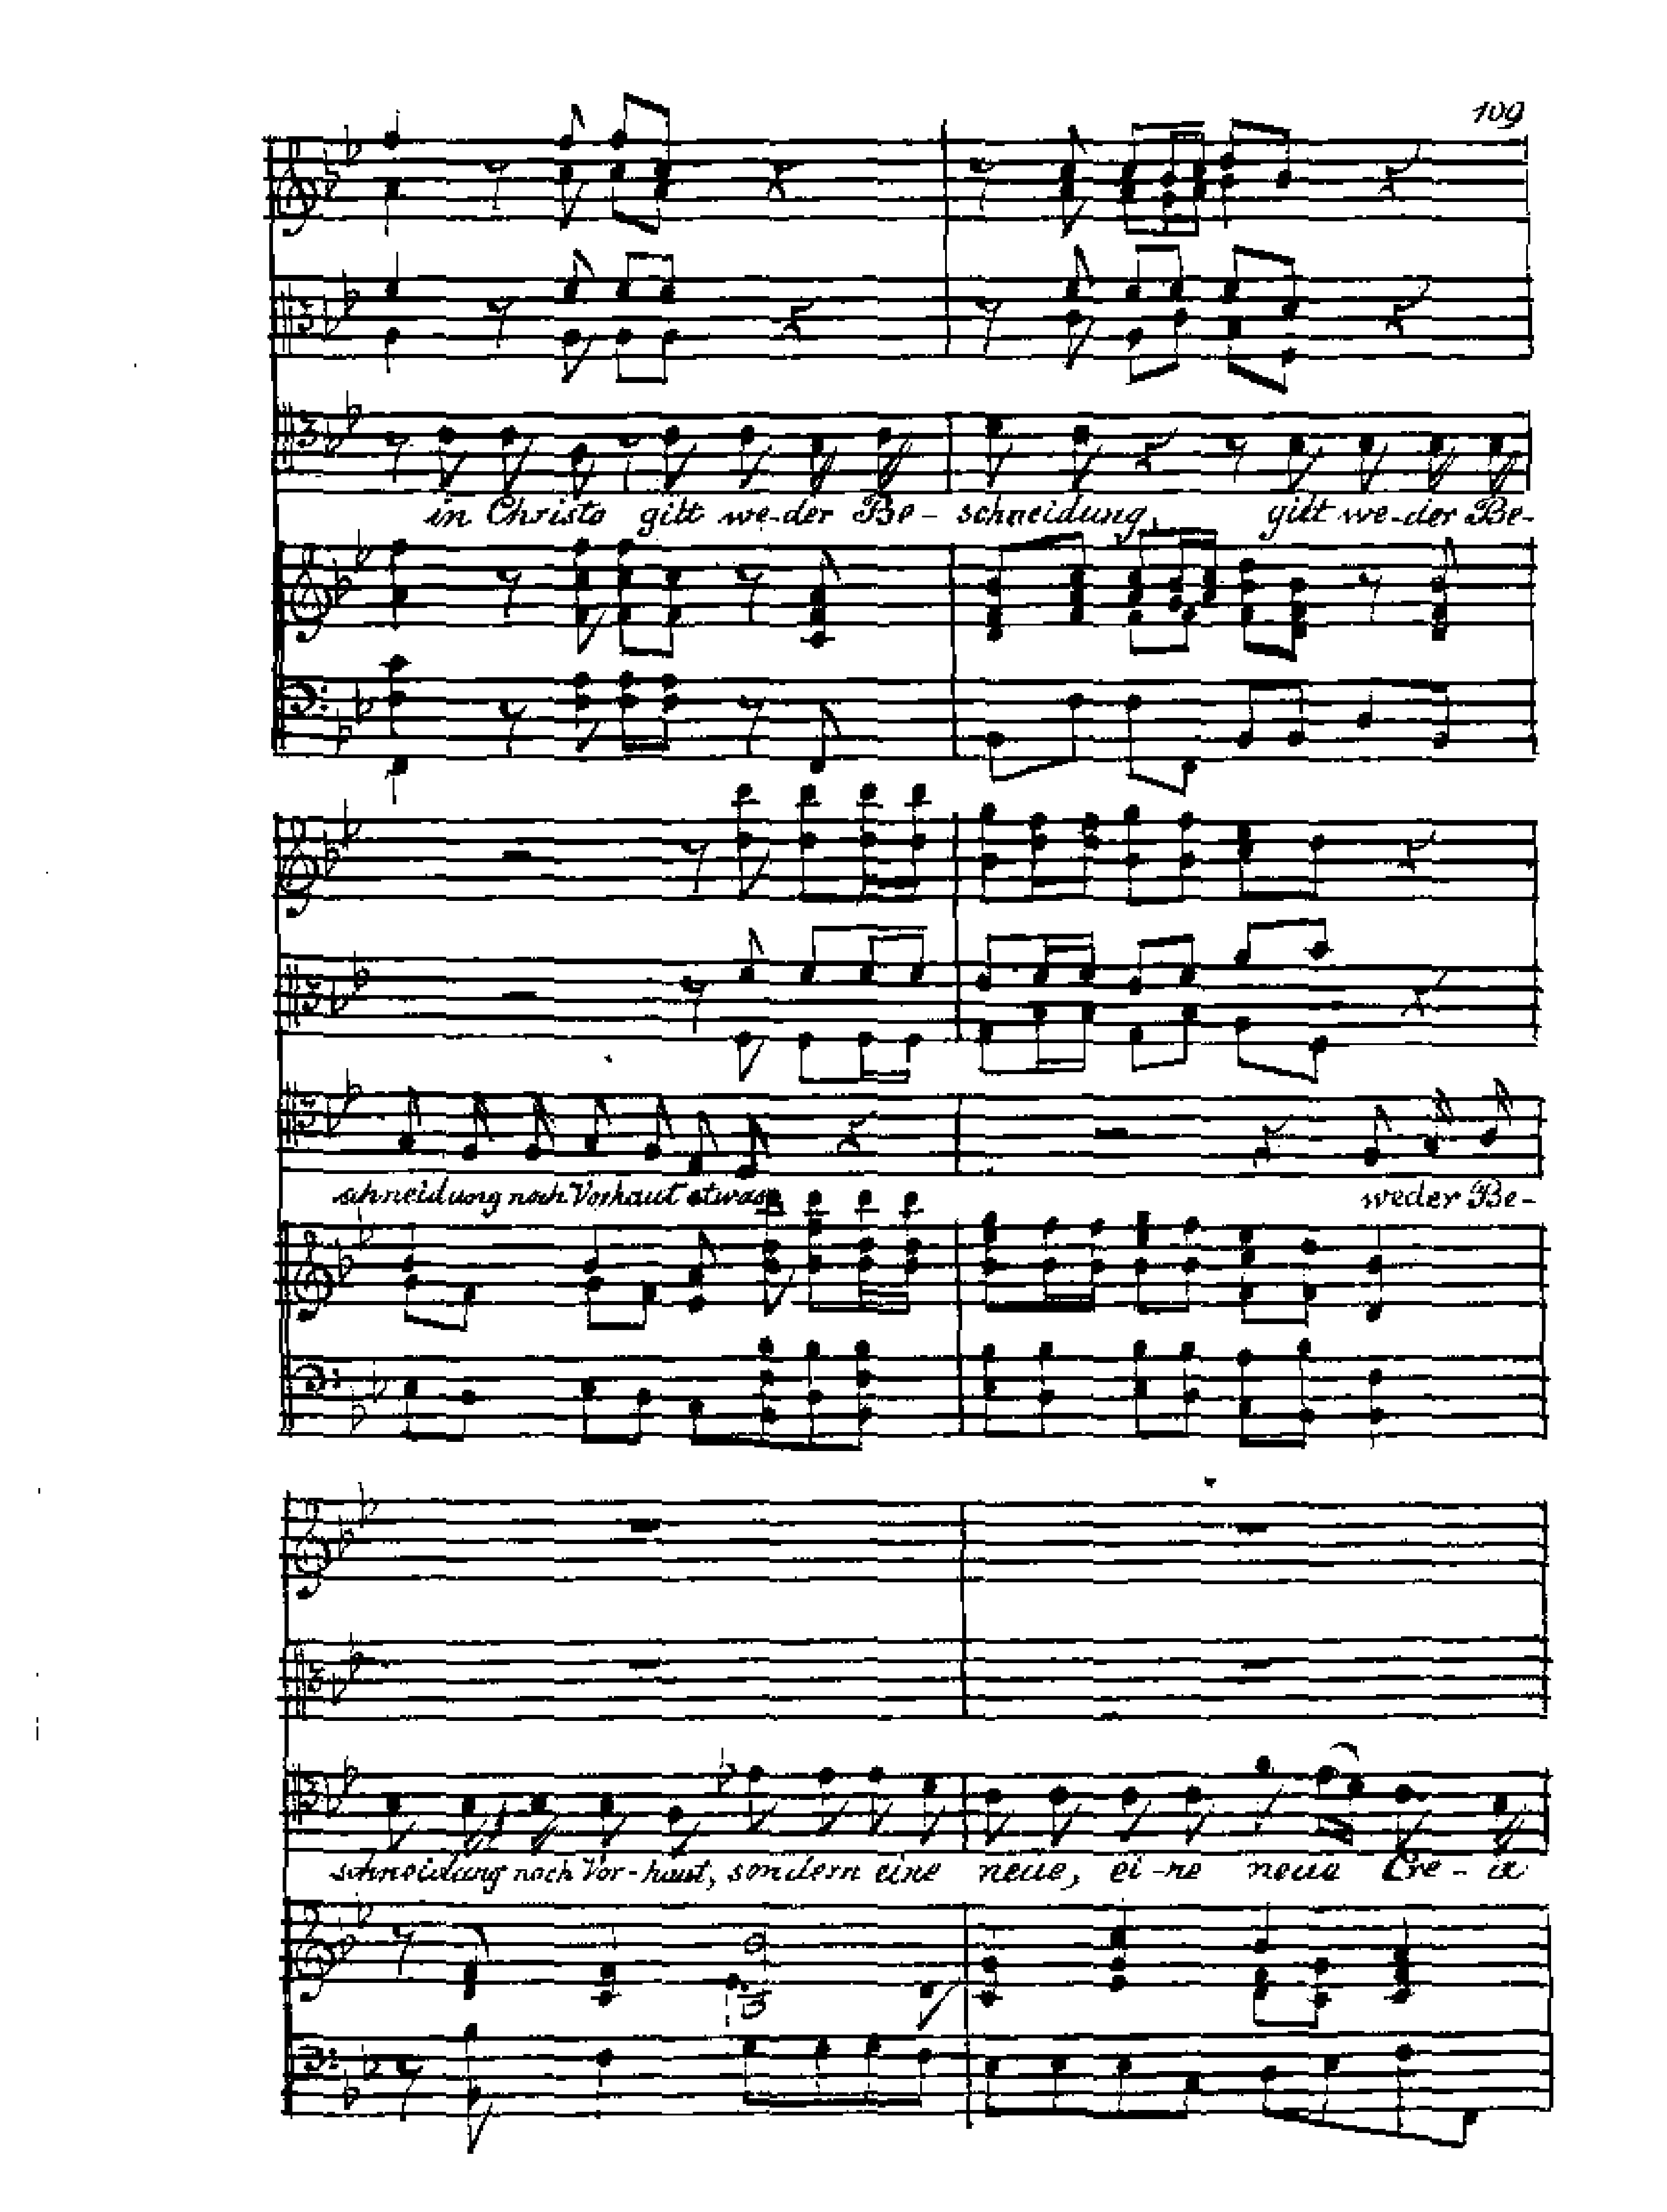 109
in Christo gilt we-der Be-schneidung, gilt we-der Be-
schneidung noch Vorhaut etwas, weder Be-
schneidung noch Vor-haut, sondern eine neue, ei-ne neue Cre-a